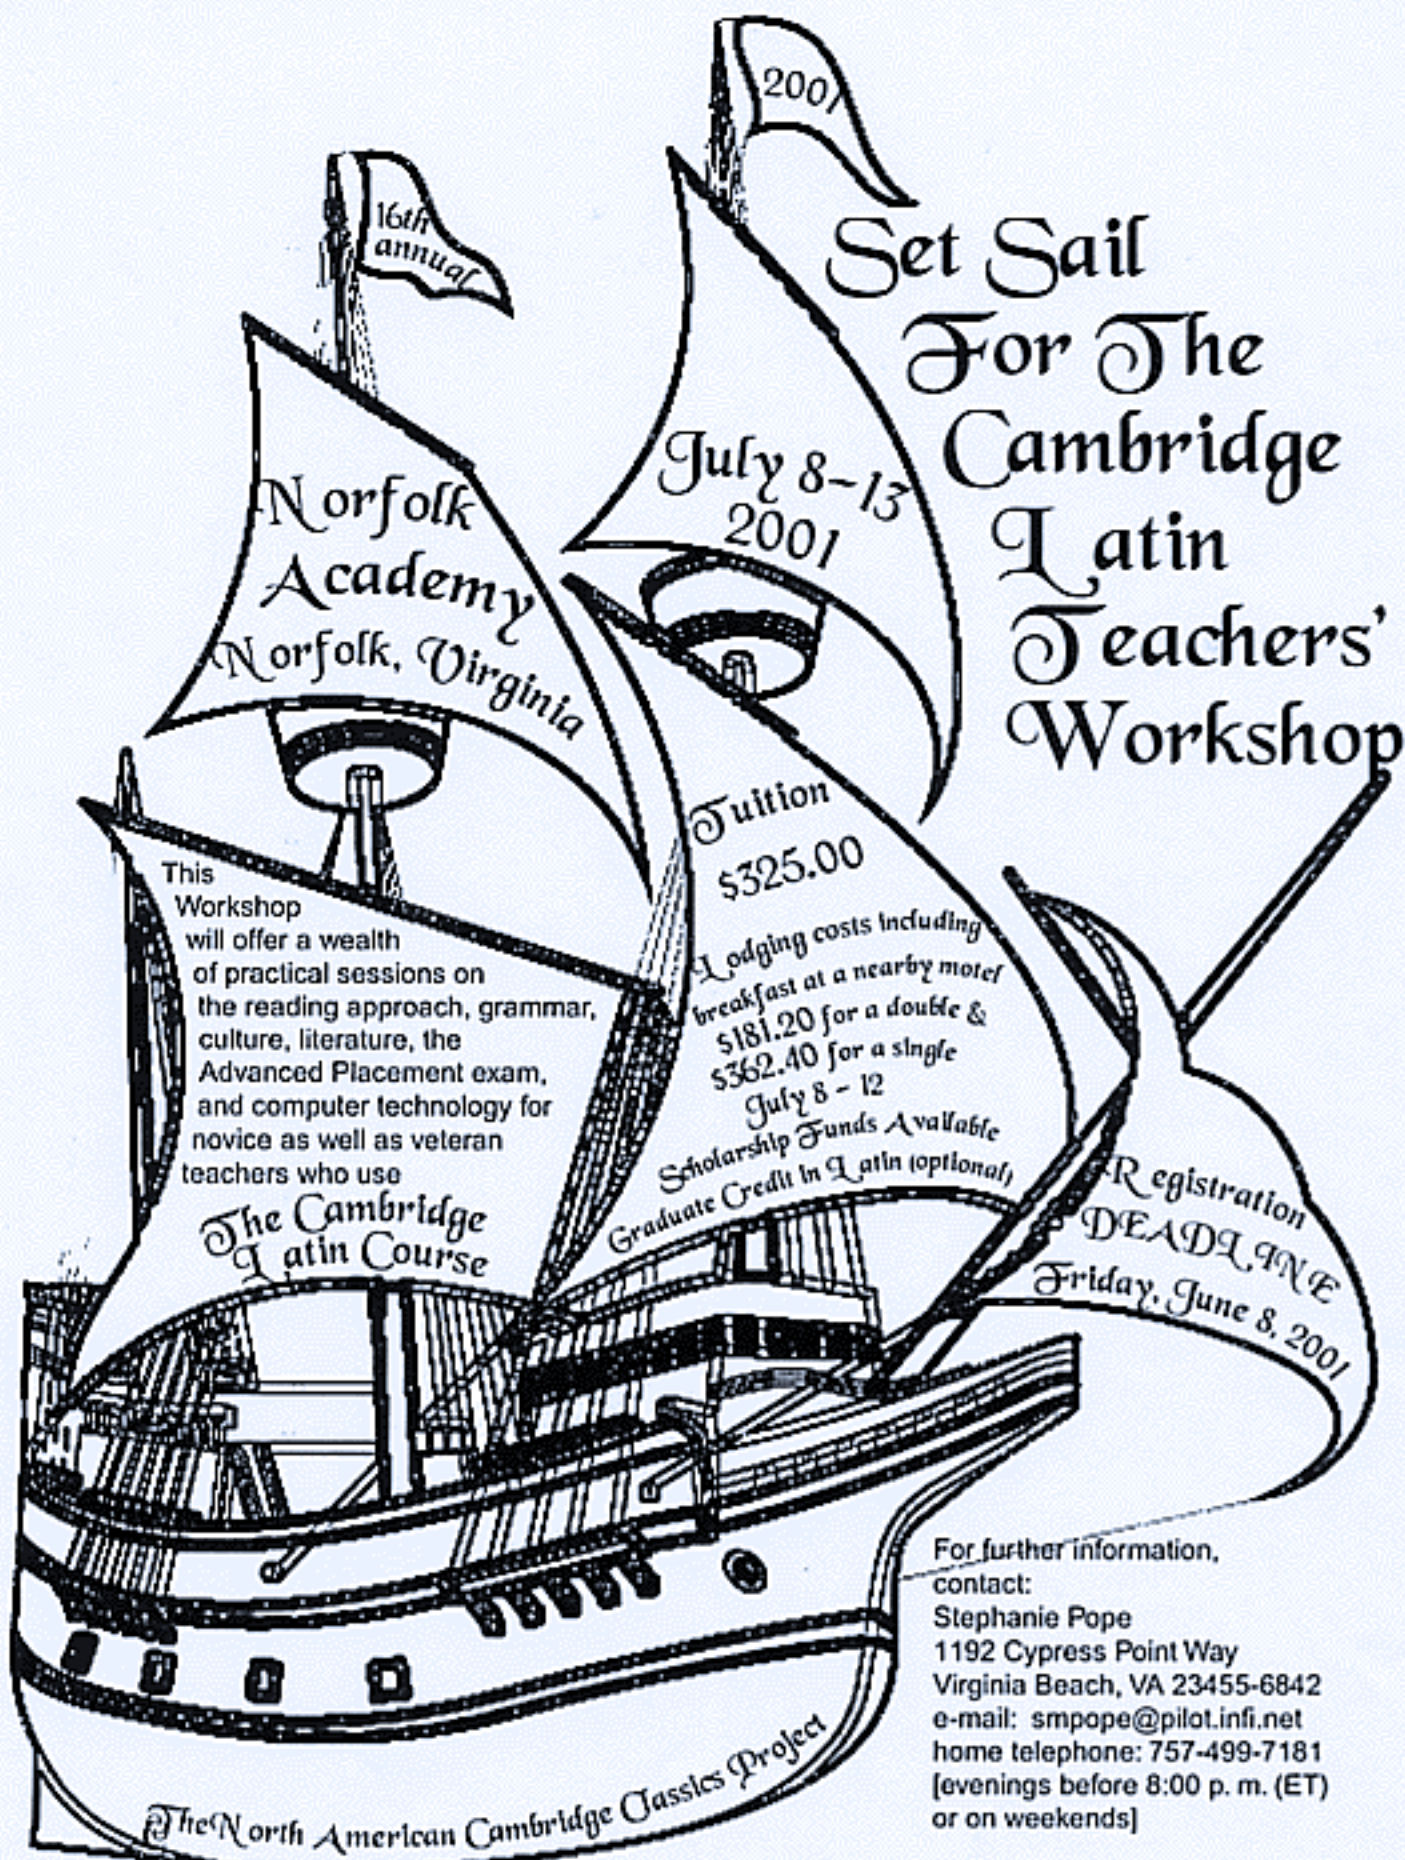 2001
16th
annual
Set Sail
For The
Cambridge
Latin
Teachers'
Workshop
July 8-13
2001
Norfolk
Academy
Norfolk, Virginia
Tuition
$325.00
Lodging costs including
breakfast at a nearby motel
$181.20 for a double &
$362.40 for a single
July 8 - 12
Scholarship Funds Available
Graduate Credit in Latin (optional)
This
Workshop
will offer a wealth
of practical sessions on
the reading approach, grammar,
culture, literature, the
Advanced Placement exam,
and computer technology for
novice as well as veteran
teachers who use
The Cambridge
Latin Course
Registration
DEADLINE
Friday, June 8, 2001
For further information,
contact:
Stephanie Pope
1192 Cypress Point Way
Virginia Beach, VA 23455-6842
e-mail: smpope@pilot.infi.net
home telephone: 757-499-7181
[evenings before 8:00 p. m. (ET)
or on weekends]
The North American Cambridge Classics Project